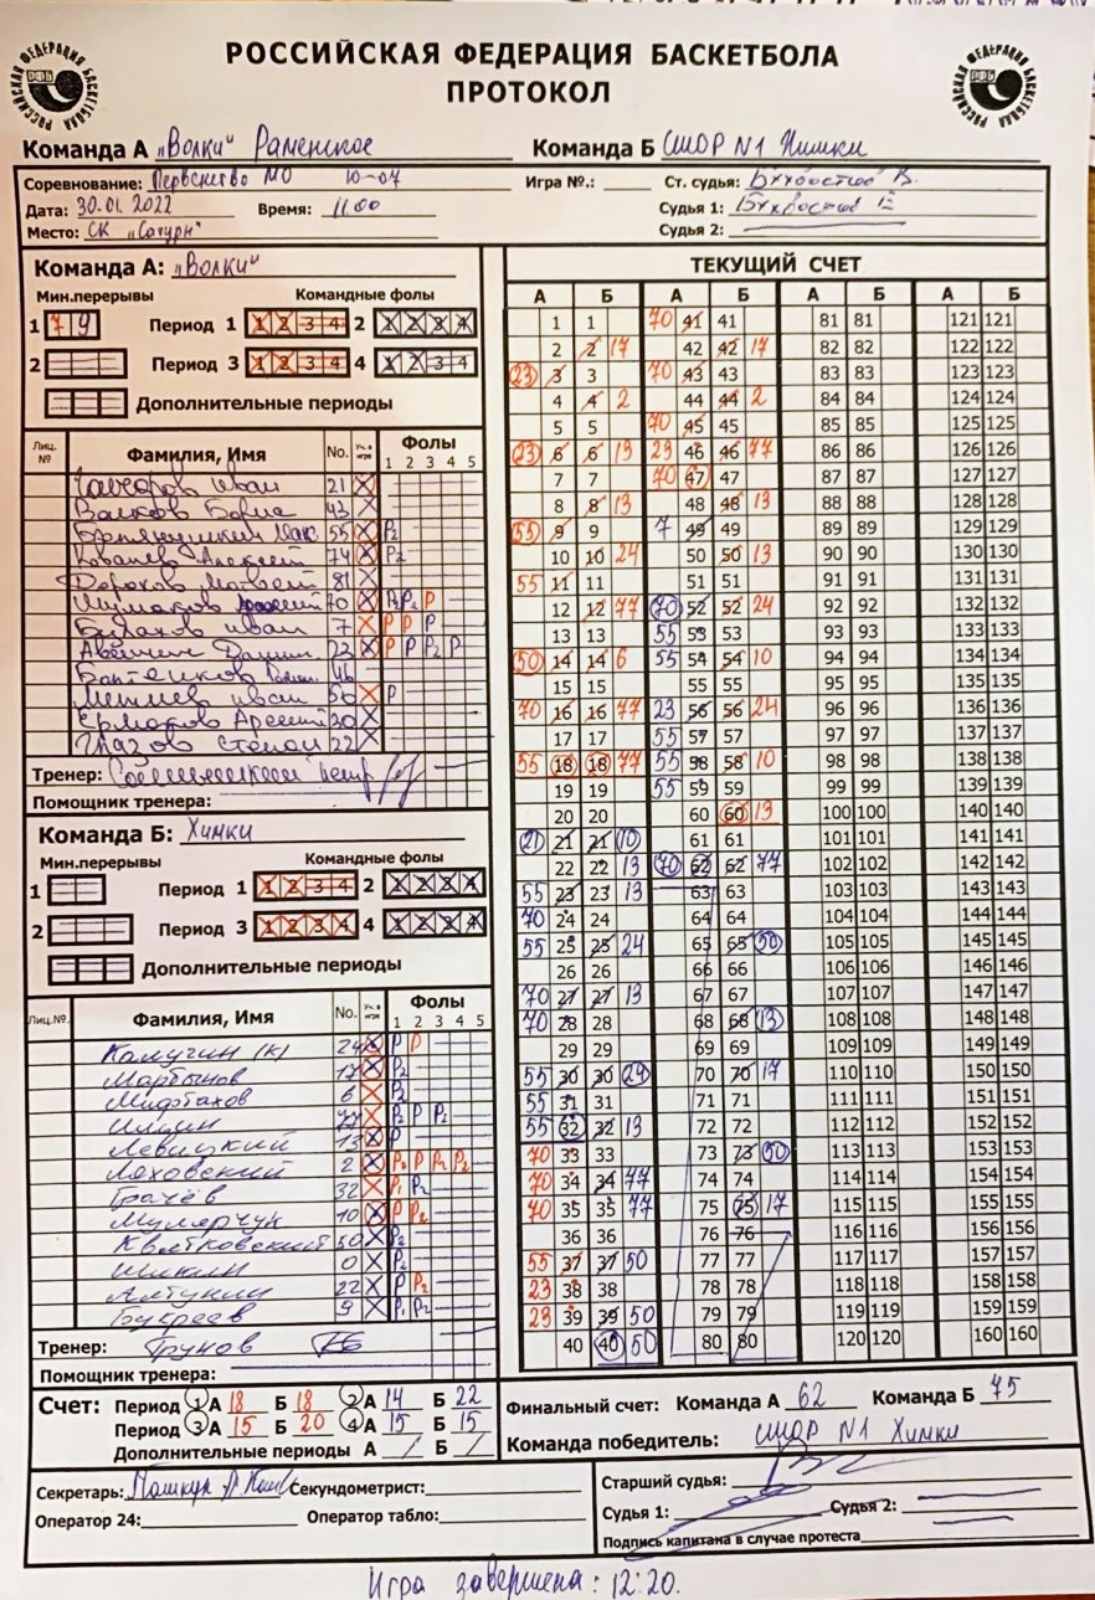 РОССИЙСКАЯ ФЕДЕРАЦИЯ БАСКЕТБОЛА
ПРОТОКОЛ
РОССИЙСКАЯ ФЕДЕРАЦИЯ БАСКЕТБОЛА
РФБ
РОССИЙСКАЯ ФЕДЕРАЦИЯ БАСКЕТБОЛА
РФБ
Команда А „Волки" Раменское Команда Б СШОР N1 Химки
Соревнование: Первенство МО 10-07 Игра №.: Ст. судья: Бухвостов В.
Дата: 30.01.2022 Время: 11.00 Судья 1: Бухвостов Е
Место: СК „Сатурн" Судья 2:
Команда А: „Волки"
Мин.перерывы Командные фолы
1 7 9 Период 1 1 2 3 4 2 1 2 3 4
2 Период 3 1 2 3 4 4 1 2 3 4
Дополнительные периоды
Лиц. № Фамилия, Имя No. Уч. в игре Фолы 1 2 3 4 5
Иван 21 X
Волков 43 X
55 X P2
Ковалев Алексей 74 X P2
Дорохов Матвей 81 X
Шумаков 70 X P2 P2 P
Булахов Иван 7 X P P P
23 X P P P2 P
46
Иван 50 X P
Ермаков Арсений 30 X
Глазов Степан 22 X
Тренер:
Помощник тренера:
Команда Б: Химки
Мин.перерывы Командные фолы
1 Период 1 1 2 3 4 2 1 2 3 4
2 Период 3 1 2 3 4 4 1 2 3 4
Дополнительные периоды
Лиц.№. Фамилия, Имя No. Уч. в игре Фолы 1 2 3 4 5
Калугин (К) 24 X P P
Мартынов 17 X P2
Мифтахов 6 X P2
Ильин 77 X P2 P P2
Левицкий 13 X P
Ляховский 2 X P2 P P2 P2
Грачёв 32 X P1 P2
Мулярчук 10 X P P2
Квятковский 50 X P2
Шиклин 0 X P2
Алтунин 22 X P P2
Букреев 9 X P1 P2
Тренер: Трунов
Помощник тренера:
ТЕКУЩИЙ СЧЕТ
А Б А Б А Б А Б
1 1 70 41 41 81 81 121 121
2 2 17 42 42 17 82 82 122 122
23 3 3 70 43 43 83 83 123 123
4 4 2 44 44 2 84 84 124 124
5 5 70 45 45 85 85 125 125
23 6 6 13 23 46 46 77 86 86 126 126
7 7 70 47 47 87 87 127 127
8 8 13 48 48 13 88 88 128 128
55 9 9 7 49 49 89 89 129 129
10 10 24 50 50 13 90 90 130 130
55 11 11 51 51 91 91 131 131
12 12 77 70 52 52 24 92 92 132 132
13 13 55 53 53 93 93 133 133
50 14 14 6 55 54 54 10 94 94 134 134
15 15 55 55 95 95 135 135
70 16 16 77 23 56 56 24 96 96 136 136
17 17 55 57 57 97 97 137 137
55 18 18 77 55 58 58 10 98 98 138 138
19 19 55 59 59 99 99 139 139
20 20 60 60 13 100 100 140 140
21 21 21 10 61 61 101 101 141 141
22 22 13 70 62 62 77 102 102 142 142
55 23 23 13 63 63 103 103 143 143
70 24 24 64 64 104 104 144 144
55 25 25 24 65 65 50 105 105 145 145
26 26 66 66 106 106 146 146
70 27 27 13 67 67 107 107 147 147
70 28 28 68 68 13 108 108 148 148
29 29 69 69 109 109 149 149
55 30 30 24 70 70 17 110 110 150 150
55 31 31 71 71 111 111 151 151
55 32 32 13 72 72 112 112 152 152
70 33 33 73 73 50 113 113 153 153
70 34 34 77 74 74 114 114 154 154
70 35 35 77 75 75 17 115 115 155 155
36 36 76 76 116 116 156 156
55 37 37 50 77 77 117 117 157 157
23 38 38 78 78 118 118 158 158
23 39 39 50 79 79 119 119 159 159
40 40 50 80 80 120 120 160 160
Счет: Период 1 А 18 Б 18 2 А 14 Б 22
Период 3 А 15 Б 20 4 А 15 Б 15
Дополнительные периоды А / Б /
Финальный счет: Команда А 62 Команда Б 75
Команда победитель: СШОР N1 Химки
Секретарь: Секундометрист:
Оператор 24: Оператор табло:
Старший судья:
Судья 1: Судья 2:
Подпись капитана в случае протеста
Игра завершена: 12:20.